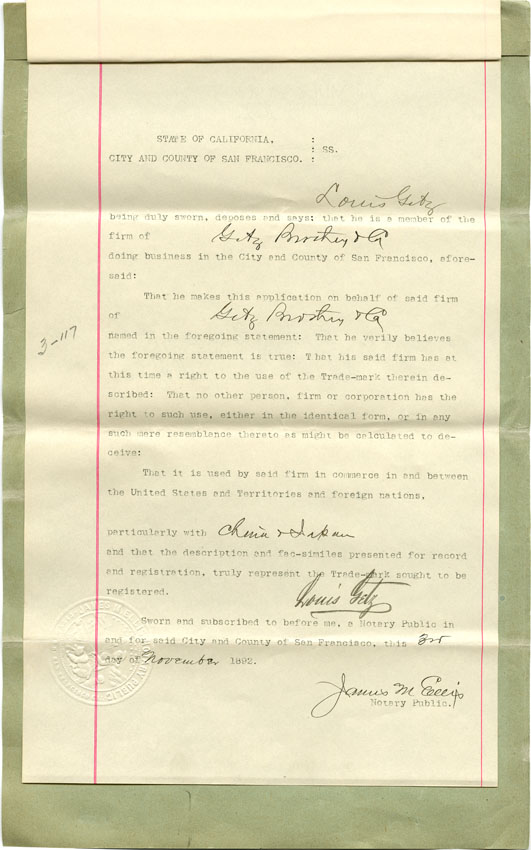 STATE OF CALIFORNIA, :
: SS.
CITY AND COUNTY OF SAN FRANCISCO. :
Louis Getz
being duly sworn, deposes and says: that he is a member of the
firm of Getz Brothers & Co
doing business in the City and County of San Francisco, afore-
said:
That he makes this application on behalf of said firm
of Getz Brothers & Co
3-117
named in the foregoing statement: That he verily believes
the foregoing statement is true: That his said firm has at
this time a right to the use of the Trade-mark therein de-
scribed: That no other person, firm or corporation has the
right to such use, either in the identical form, or in any
such mere resemblance thereto as might be calculated to de-
ceive:
That it is used by said firm in commerce in and between
the United States and Territories and foreign nations,
particularly with China & Japan
and that the description and fac-similes presented for record
and registration, truly represent the Trade-mark sought to be
registered. Louis Getz
Sworn and subscribed to before me, a Notary Public in
and for said City and County of San Francisco, this 3rd
day of November 1892.
James M Ellis
Notary Public.